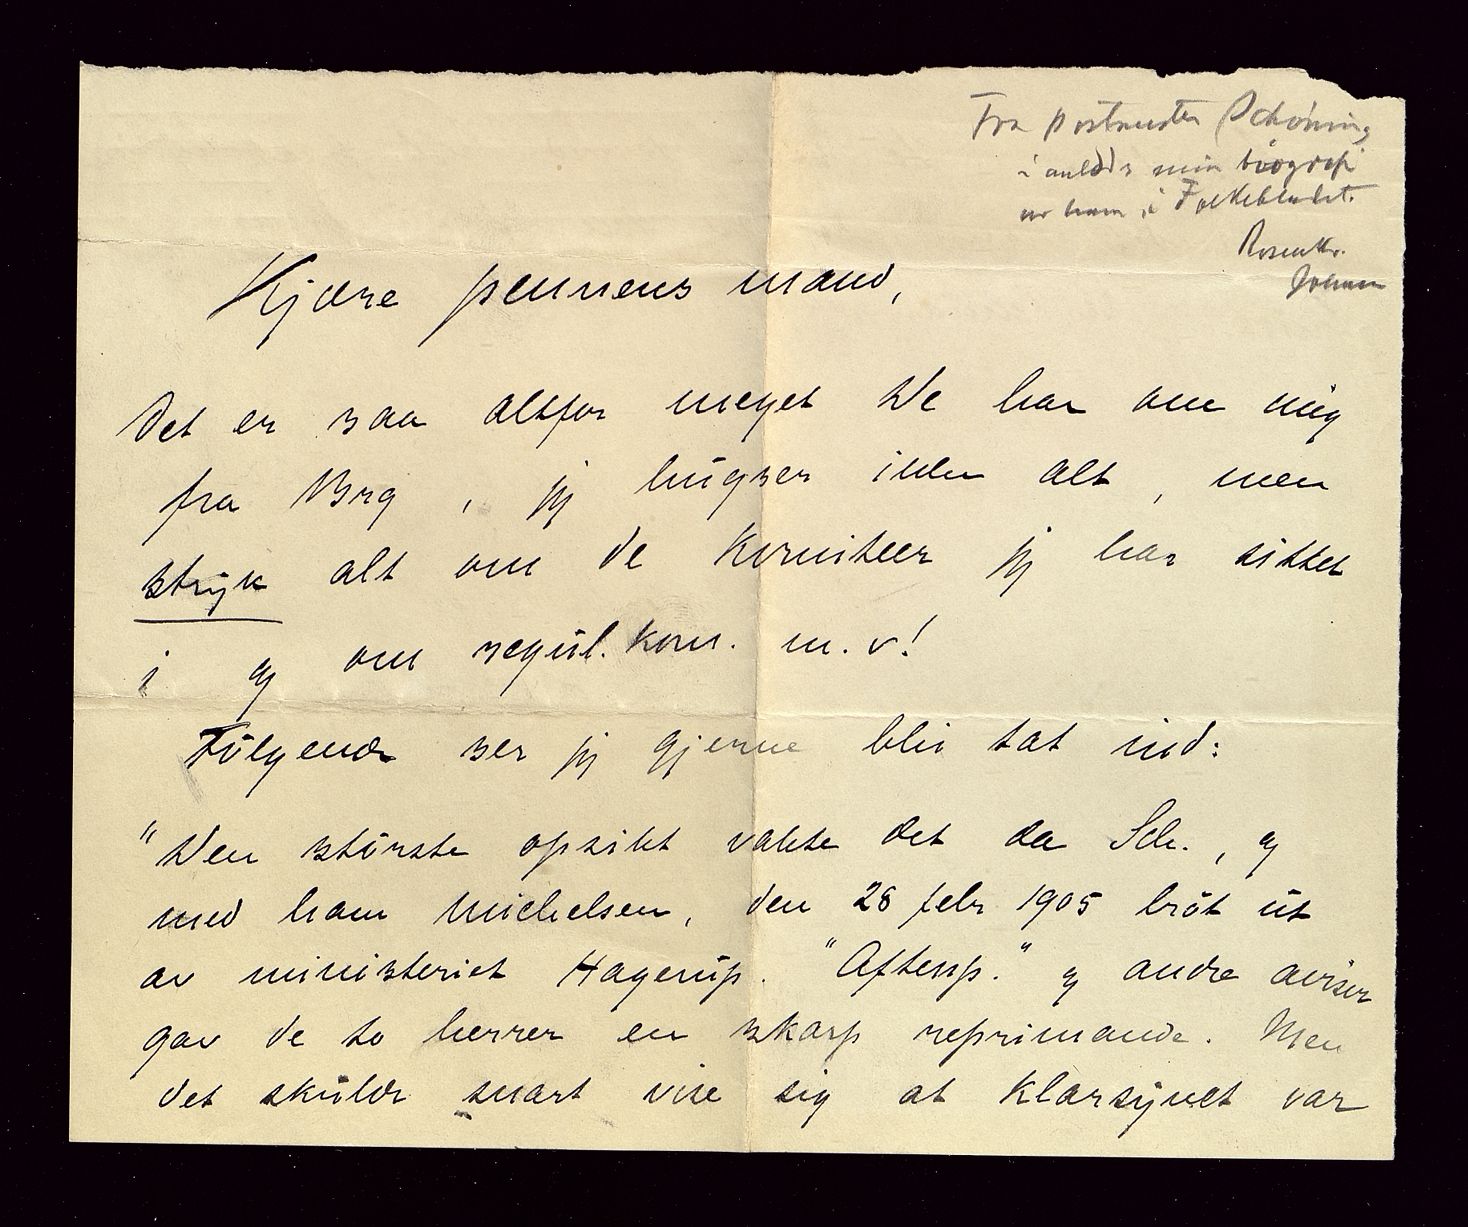 Fra postmester Schøning
i anledn. min biografi
av ham i Folkebladet.
Rosenkr.
Johnsen
Kjære pennens mand,
Det er saa altfor meget De har om mig
fra Brg, jeg husker ikke alt, men
stryk alt om de komiteer jeg har sittet
i og om regul. kom. m. v!
Følgende ser jeg gjerne bli tat ind:
"Den største opsikt vakte det da Sch., og
med ham Michelsen, den 28 febr 1905 brøt ut
av ministeriet Hagerup. "Aftenp." og andre aviser
gav de to herrer en skarp reprimande. Men
det skulde snart vise sig at klarsynet var